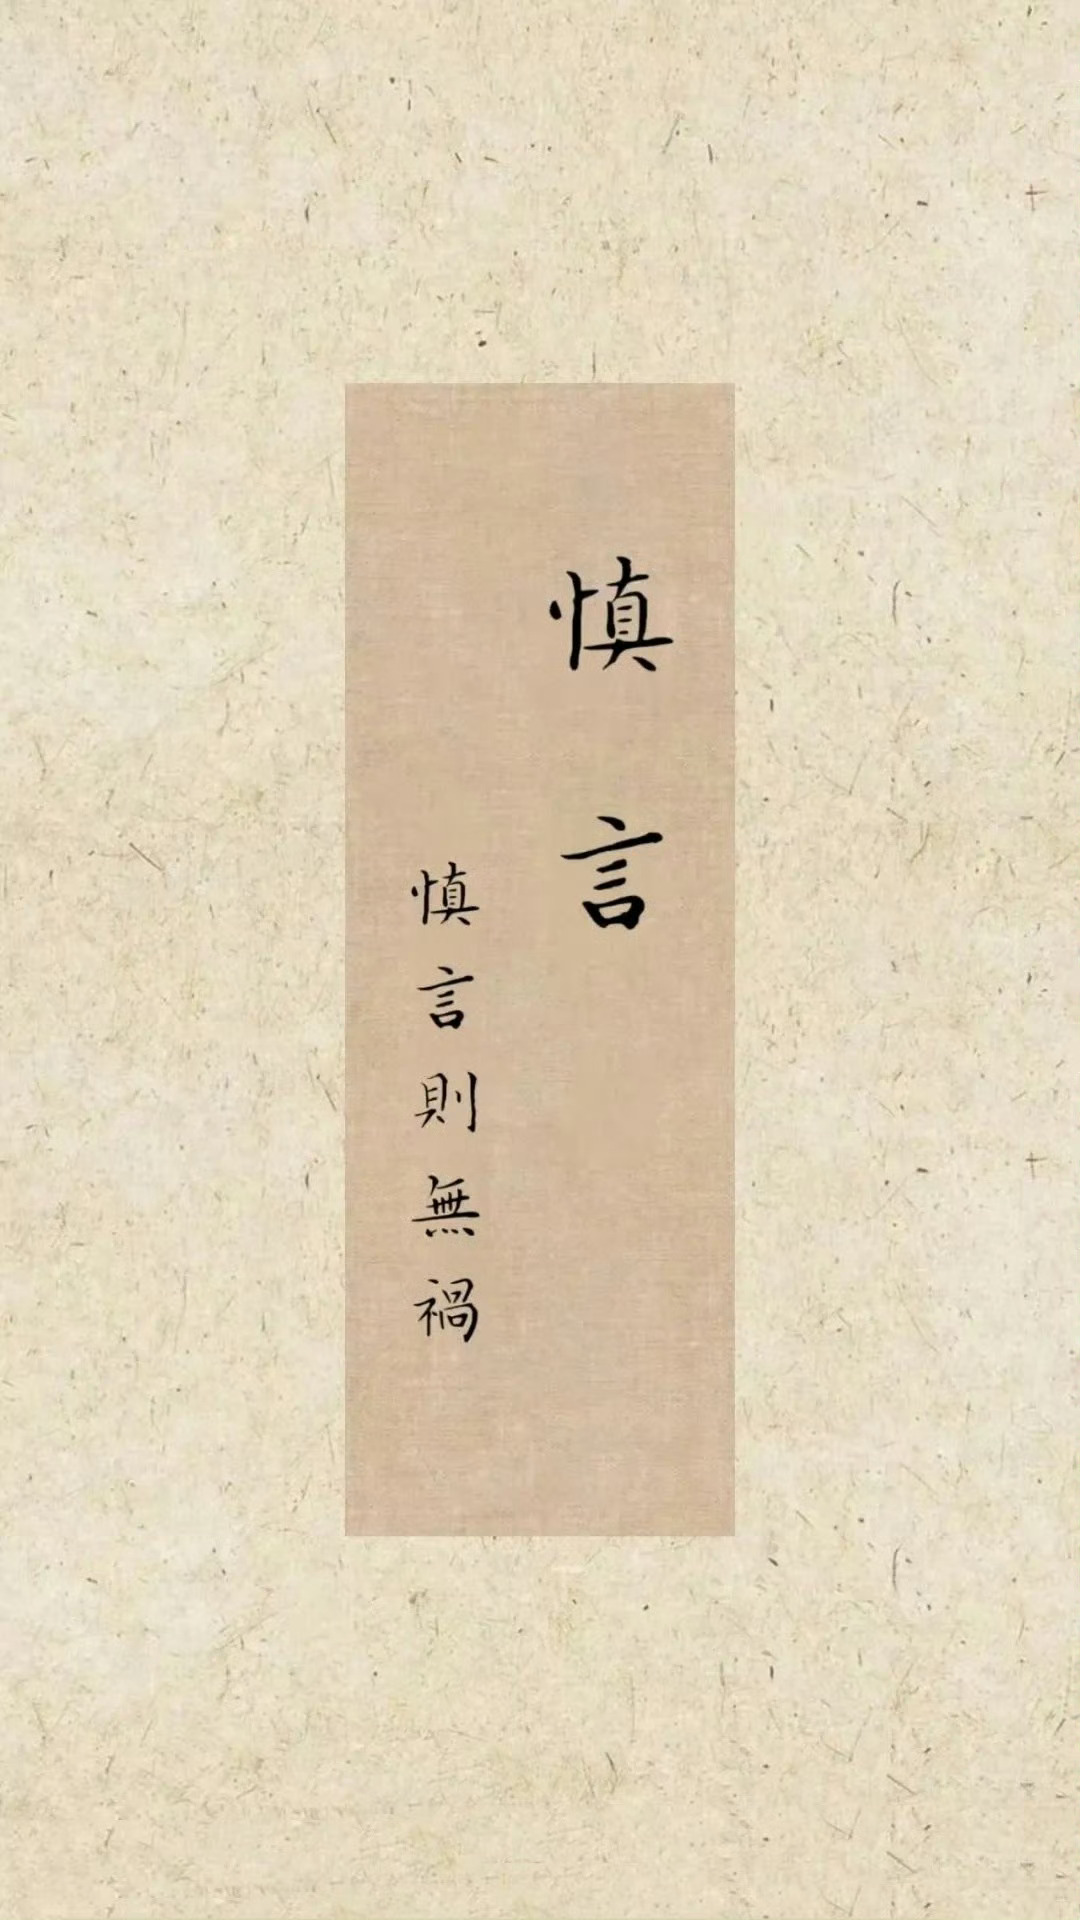 慎言
慎言則無禍